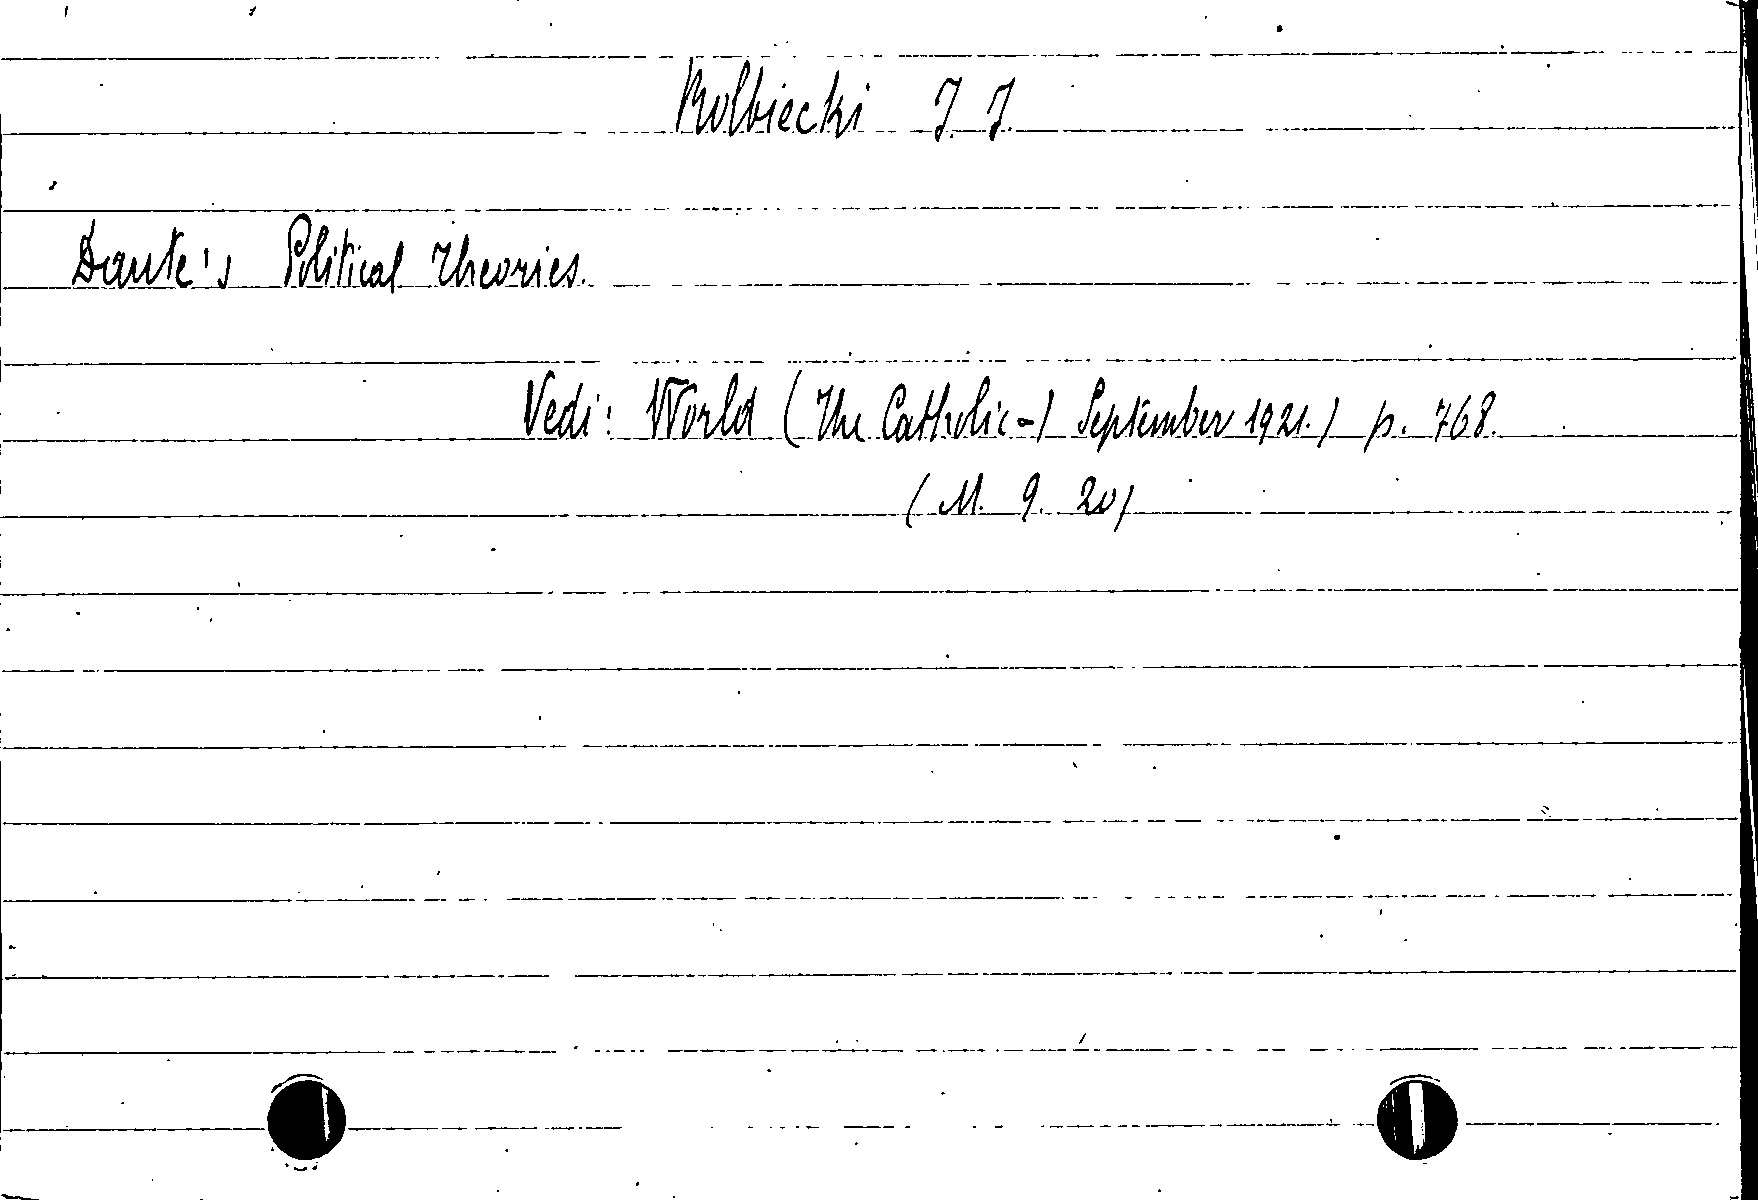 Kolbiecki J. J.
Dante's Political Theories.
Vedi: World (The Catholic-) September 1921.) p. 768.
(M. 9. 20)